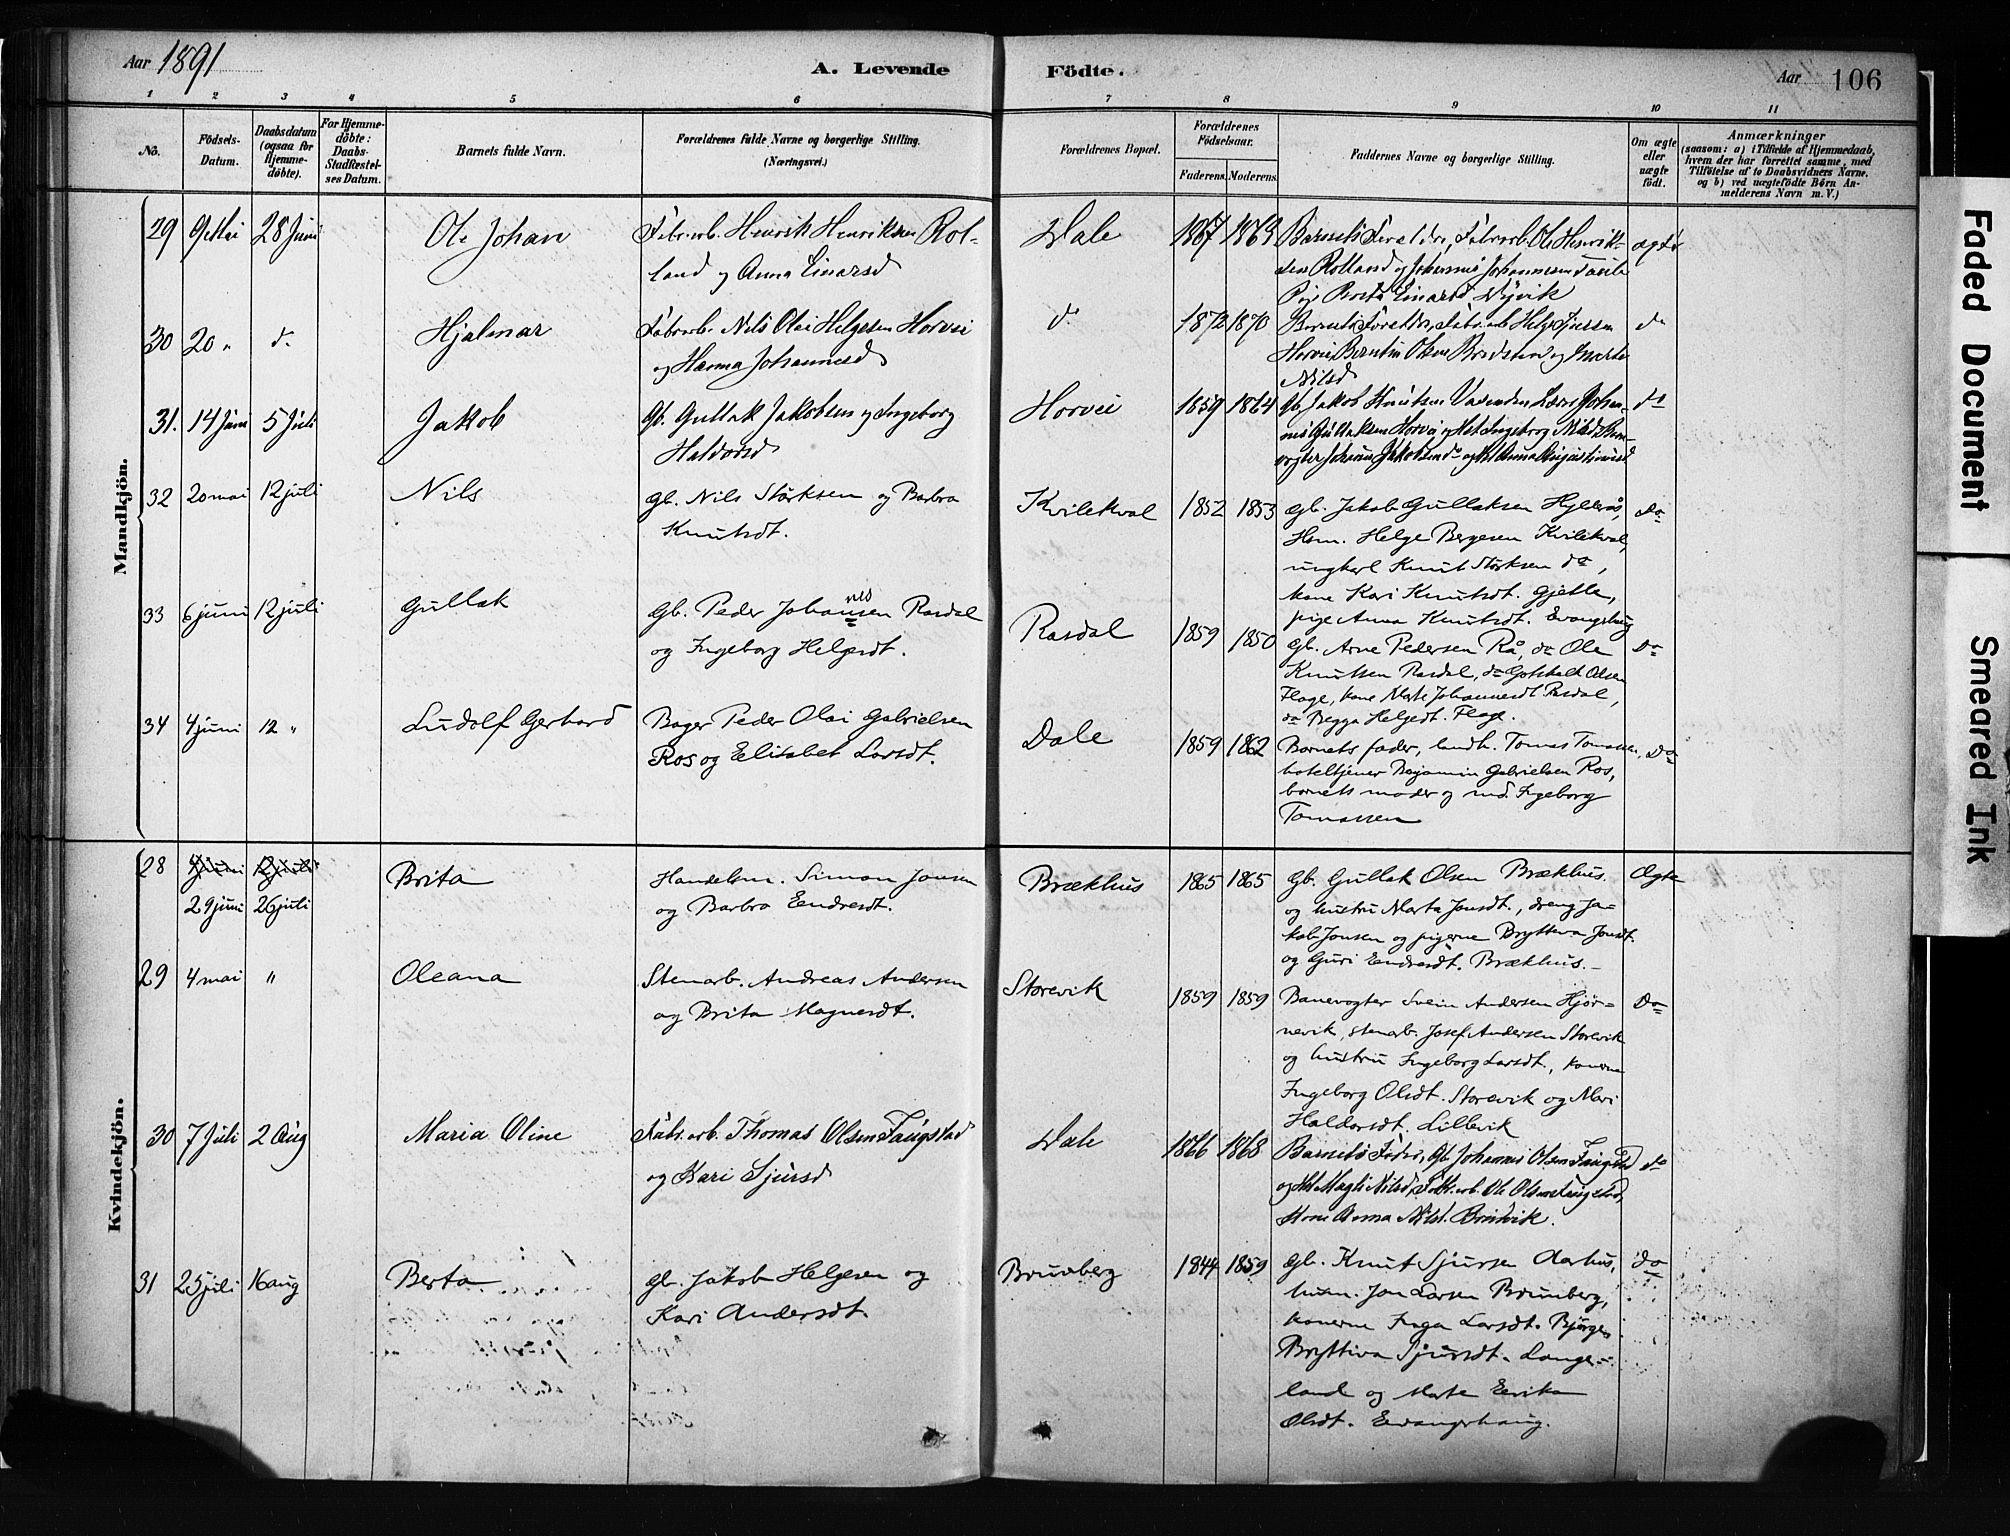 Aar 1891
A. Levende Födte.
Aar 106
1 2 3 4 5 6 7 8 9 10 11
No.
Födsels-Datum.
Daabsdatum (ogsaa for Hjemme-döbte).
For Hjemme-döbte: Daabs-Stadfæstel-ses Datum.
Barnets fulde Navn.
Forældrenes fulde Navne og borgerlige Stilling. (Næringsvei.)
Forældrenes Bopæl.
Forældrenes Födselsaar.
Faderens. Moderens.
Faddernes Navne og borgerlige Stilling.
Om ægte eller uægte födt.
Anmærkninger
(saasom: a) i Tilfælde af Hjemmedaab, hvem der har forrettet samme, med Tilföielse af to Daabsvidners Navne. og b) ved uægtefödte Börn An-melderens Navn m. V.)
Mandkjön.
29 9 Mai 28 Juni Ole Johan Fabr.arb. Henrik Henriksen Rol-
land og Anna Einarsd
Dale 1867 1869 Barnets Foreldre, Fabr.arb. Ole Henrik-
sen Rolland og Johannes Johannessen
Pige Einarsd
30 20 " do Hjalmar Fabr.arb. Nils Olai Helgesen Horvei
og Hanna Johannesd
do 1872 1870 Barnets Foreldre, Fabr.arb. Helge
Horvei, Olsen og Marta
Nilsd do
31. 14 Juni 5 Juli Jakob Gb. Gullak Jakobsen og Ingeborg
Haldorsd
Horvei 1859 1864 Gb. Jakob Knutsen Johan-
nes Gullaksen Horvei og Ingeborg Nilsd
Jakobsen do og Anna do
32 20 mai 12 juli Nils gb. Nils Störksen og Barbra
Knutsdt.
Kvilekval 1852 1853 gb. Jakob Gullaksen Hellerås,
Hsm. Helge Bergesen Kvilekval,
ungkarl Knut Störksen do,
kone Kari Knutsdt. Gjelle,
pige Anna Knutsdt. Evangshaug
Do
33 6 juni 12 juli Gullak gb. Peder Johannesen Rasdal
og Ingeborg Helgesdt.
Rasdal 1859 1850 gb. Arne Pedersen Rå, do Ole
Knutsen Rasdal, do Gotskalk Olsen
Flage, kone Marta Johannesdt Rasdal,
do Begga Helgesdt. Flage.
Do
34 4 juni 12 " Ludolf Gerhard Bager Peder Olai Gabrielsen
Ros og Elisabet Larsdt.
Dale 1859 1862 Barnets fader, landh. Tomas Tomassen,
hoteltjener Benjamin Gabrielsen Ros,
barnets moder og md. Ingeborg
Tomassen
Do
Kvindekjön.
28 4 juni 12 juli
29 juni 26 juli Brita Handelsm. Simon Jonsen
og Barbra Endresdt.
Brækhus 1865 1865 gb. Gullak Olsen Brækhus
og hustru Marta Jonsdt., dreng Ja-
kob Jonsen og pigerne Brytteva Jonsdt.
og Guri Endresdt. Brækhus.
Ægte
29 4 mai " Oleana Stenarb. Andreas Andersen
og Brita Magnesdt.
Storevik 1859 1859 Banevogter Svein Andersen Hjör-
nevik, stenarb. Josef Andersen Storevik
og hustru Ingeborg Larsdt., konerne
Ingeborg Olsdt. Storevik og Mari
Haldorsdt. Lillevik
Do
30 7 Juli 2 Aug Maria Oline Fabr.arb. Thomas Olsen Fangstad
og Kari Sjursd
Dale 1866 1868 Barnets Fader, Gb. Johannes Olsen
og Magli Nilsd, Fabr.arb. Ole Olsen
Kone Anna Nilsd. do
31 25 juli 16 aug Berta gb. Jakob Helgesen og
Kari Andersdt.
Brunberg 1844 1859 gb. Knut Sjursen Aarhus,
husm. Jon Larsen Brunberg,
konerne Inga Larsdt. Bjørge,
Bryttiva Sjursdt. Lange-
land og Marta Eerika
Olsdt. Evangerhaug.
do
Faded Document
Smeared Ink